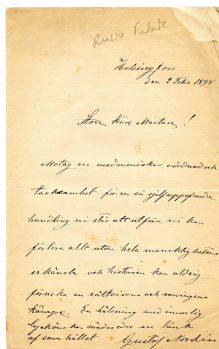 Helsingfors
den 2 Febr 1898
Store käre Mästare!
Motag en medmenniskas vördnadsfulla
tacksamhet för en så sjelfuppoffrande
handling ni står att utföra ni kan
förlora allt utom hela mensklighetens
erkänsla och historien kan aldrig
förneka en rättvisans och sanningens
En hälsning med
lyckönskan sändes
af samhället
Gustaf Nordin